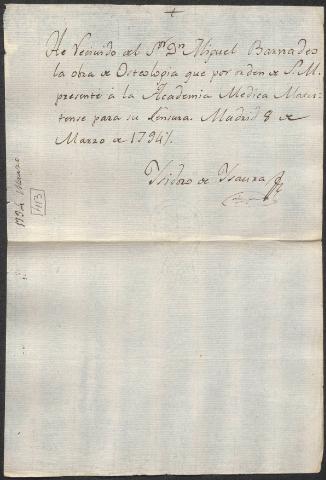 +
He Recivido del Sor. Dn. Miguel Barnades
la obra de Osteologia que por orden de S. M.
presenté á la Academia Medica Matri-
tense para su Censura. Madrid 8 de
Marzo de 1794.
Isidoro de Isaura
1794 Marzo
1113